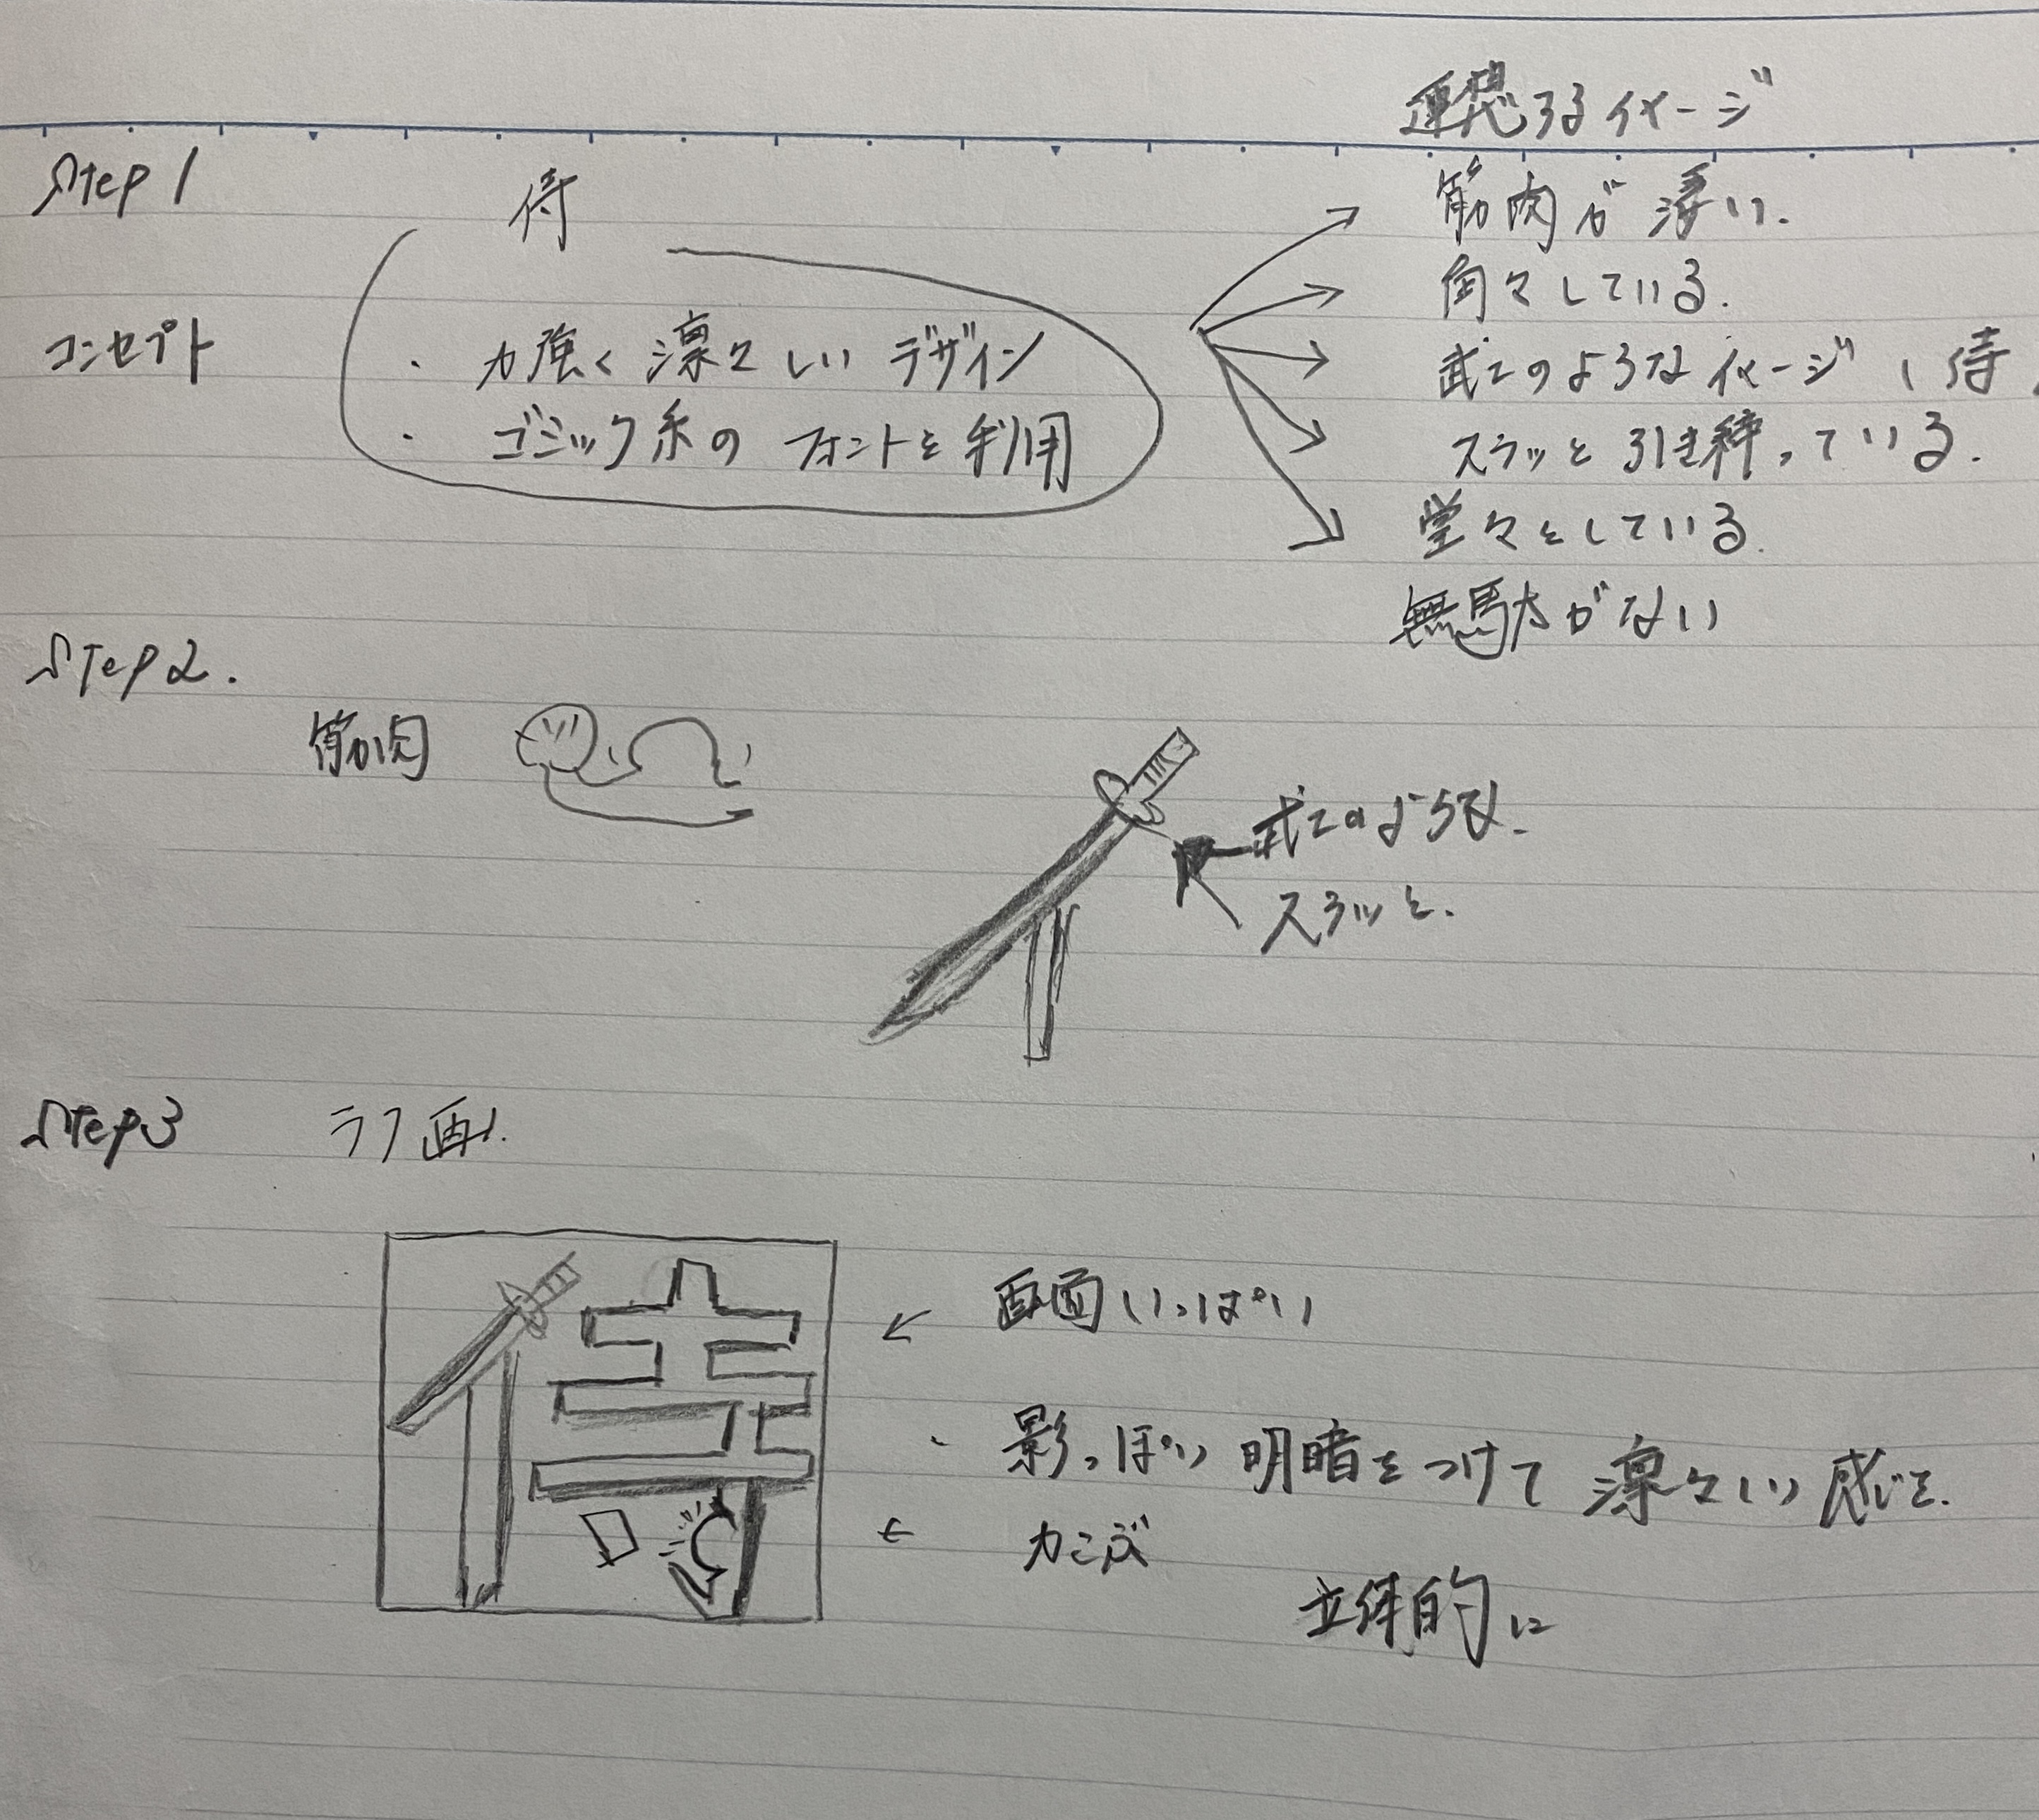 Step1
侍
コンセプト
・ 力強く凛々しいデザイン
・ ゴシック系のフォントを利用
連想するイメージ
筋肉が凄い.
角々している.
武士のようなイメージ (侍)
スラッと引き締っている.
堂々としている.
無駄がない
Step2.
筋肉
武士のような.
スラッと.
Step3 ラフ画.
画面いっぱい
・ 影っぽい明暗をつけて凛々しい感じを.
力こぶ
立体的に